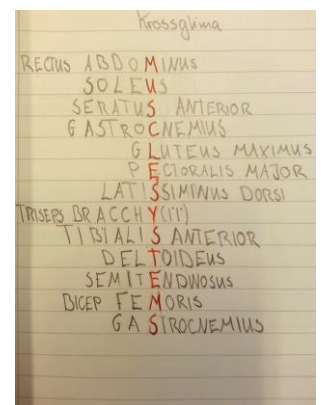 Krossglíma
RECTUS ABDOMINUS
SOLEUS
SERATUS ANTERIOR
GASTROCNEMIUS
GLUTEUS MAXIMUS
PECTORALIS MAJOR
LATISSIMINUS DORSI
TRISEPS BRACCHY(???)
TIBIALIS ANTERIOR
DELTOIDEUS
SEMITENDINOSUS
BICEP FEMORIS
GASTROCNEMIUS